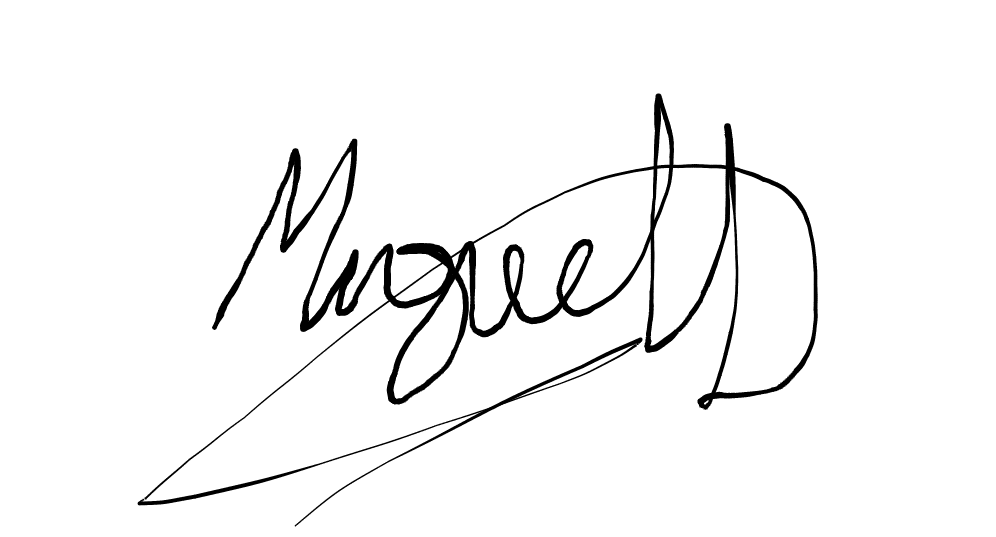 Miguel D